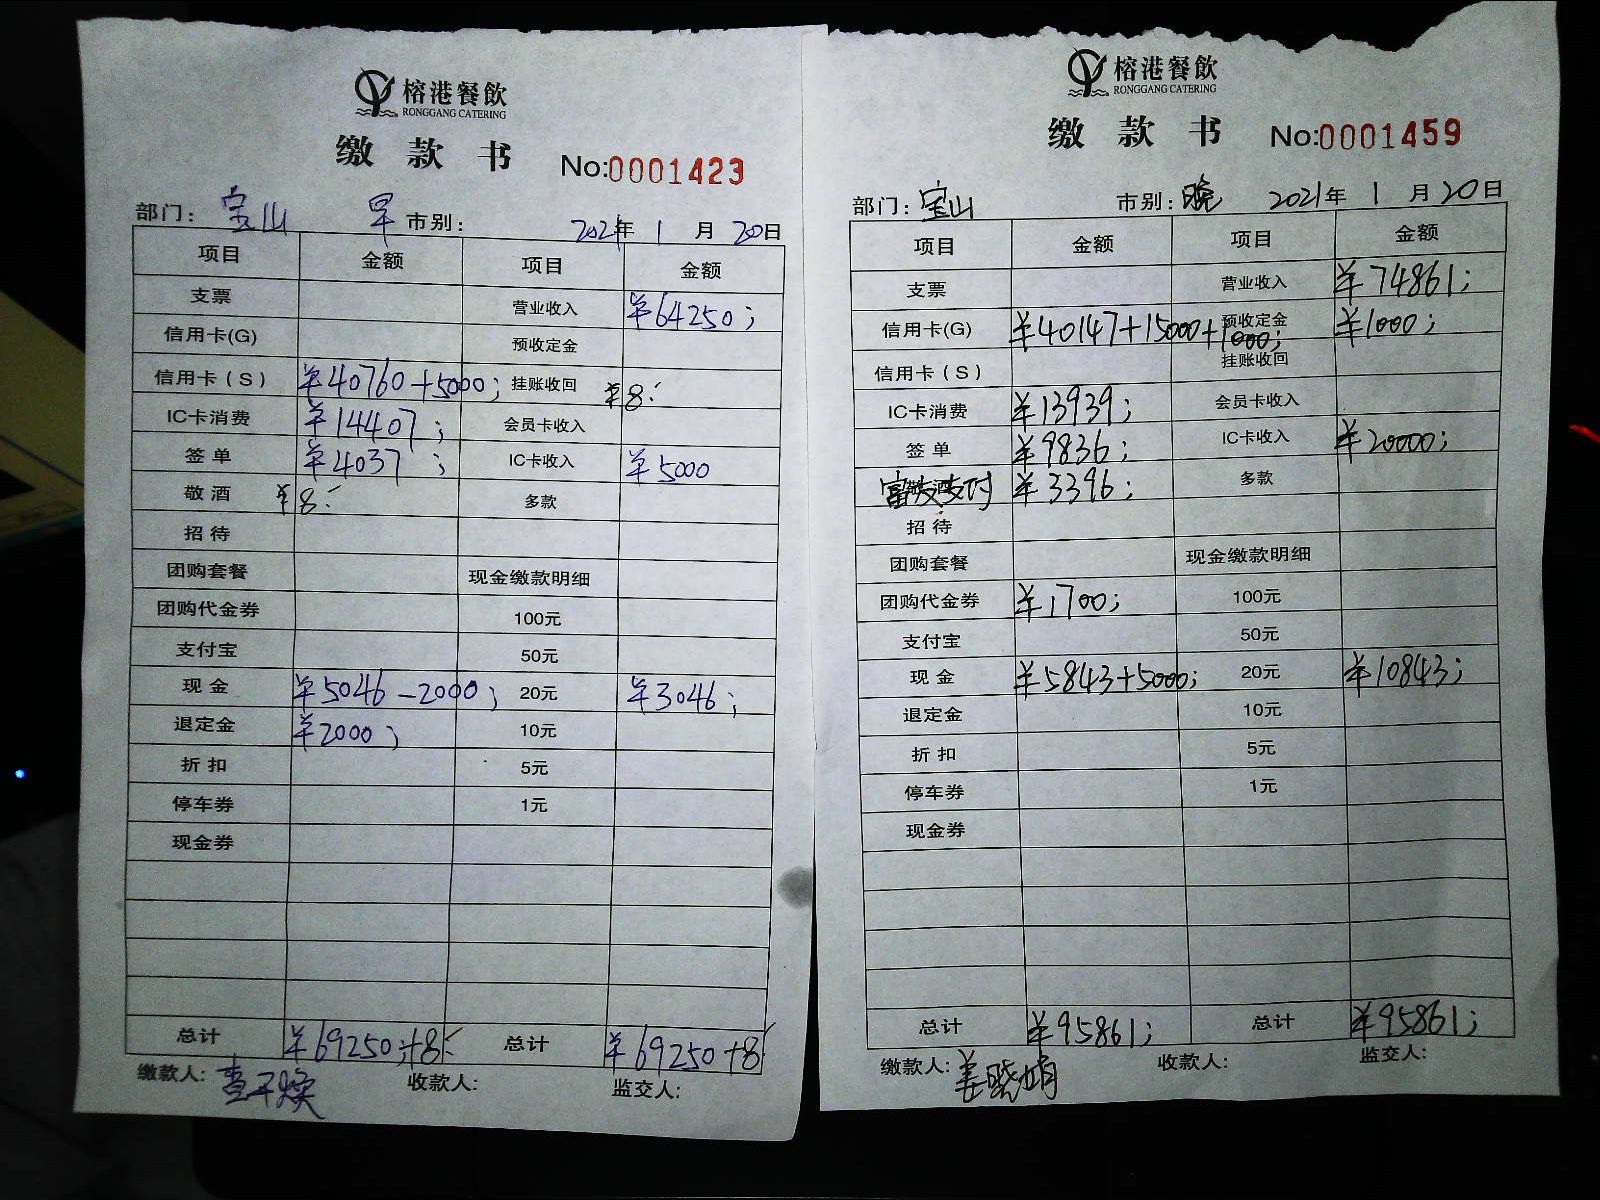 榕港餐飲
RONGGANG CATERING
缴款书 No:0001423
部门: 宝山 早 市别: 2021年 1 月 20日
项目 金额 项目 金额
支票 营业收入 ¥64250;
信用卡(G) 预收定金
信用卡(S) ¥40760+5000; 挂账收回 ¥8.
IC卡消费 ¥14407; 会员卡收入
签单 ¥4037; IC卡收入 ¥5000
敬酒 ¥8. 多款
招待
团购套餐 现金缴款明细
团购代金券 100元
支付宝 50元
现金 ¥5046-2000; 20元 ¥3046;
退定金 ¥2000; 10元
折扣 5元
停车券 1元
现金券
总计 ¥69250;+8. 总计 ¥69250+8.
缴款人: 收款人: 监交人:
榕港餐飲
RONGGANG CATERING
缴款书 No:0001459
部门: 宝山 市别: 晚 2021年 1 月 20日
项目 金额 项目 金额
支票 营业收入 ¥74861;
信用卡(G) ¥40147+15000+1000; 预收定金 ¥1000;
信用卡(S) 挂账收回
IC卡消费 ¥13939; 会员卡收入
签单 ¥9836; IC卡收入 ¥20000;
支付 ¥3396; 多款
招待
团购套餐 现金缴款明细
团购代金券 ¥1700; 100元
支付宝 50元
现金 ¥5843+5000; 20元 ¥10843;
退定金 10元
折扣 5元
停车券 1元
现金券
总计 ¥95861; 总计 ¥95861;
缴款人: 姜晓娟 收款人: 监交人: